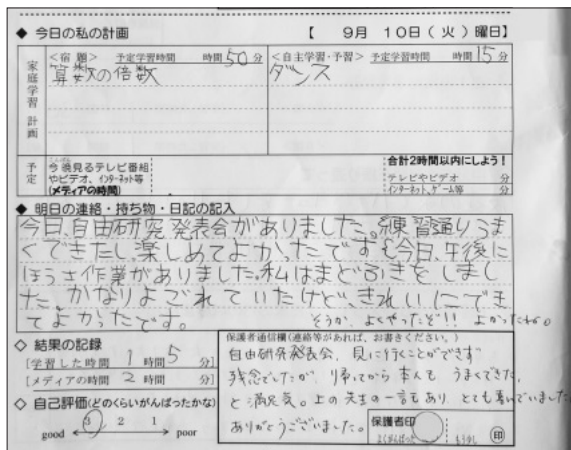 ◆ 今日の私の計画 【 9月 10日(火)曜日】
家庭学習計画
<宿題> 予定学習時間 時間50分
算数の倍数
<自主学習・予習> 予定学習時間 時間15分
ダンス
予定
今晩見るテレビ番組
やビデオ、インターネット等
(メディアの時間)
合計2時間以内にしよう!
テレビやビデオ 分
インターネット、ゲーム等 分
◆ 明日の連絡・持ち物・日記の記入
今日、自由研究発表会がありました。練習通りうま
くできたし、楽しめてよかったです。今日、午後に
ほうさ作業がありました。私はまどふきをしまし
た。かなりよごれていたけど、きれいにでき
てよかったです。
そうか、よくやったぞ!! よかったね。
◇ 結果の記録
[学習した時間 1 時間 5 分]
[メディアの時間 2 時間 分]
◇ 自己評価(どのくらいがんばったかな)
3 2 1
good poor
保護者通信欄(連絡等があれば、お書きください。)
自由研究発表会、見に行くことができず
残念でしたが、帰ってから本人も、うまくできた。
と満足気。上の先生の一言もあり、とても喜んでいました
ありがとうございました。
保護者印
よくがんばった もう少し
印